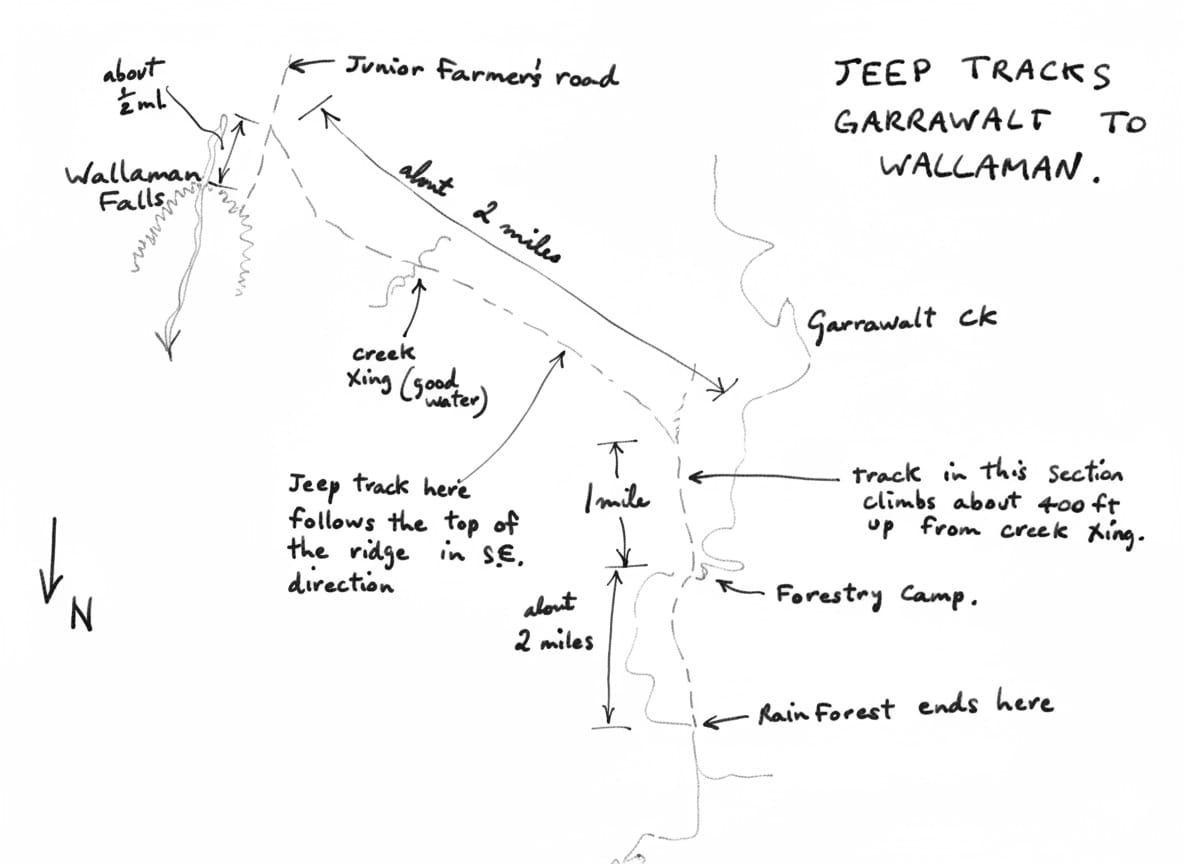 JEEP TRACKS
GARRAWALT TO
WALLAMAN.
about
½ ml.
Junior Farmer's road
Wallaman
Falls
about 2 miles
Garrawalt Ck
creek
Xing (good
water)
Jeep track here
follows the top of
the ridge in S.E.
direction
1 mile
track in this section
climbs about 400 ft
up from creek Xing.
N
Forestry Camp.
about
2 miles
Rain Forest ends here